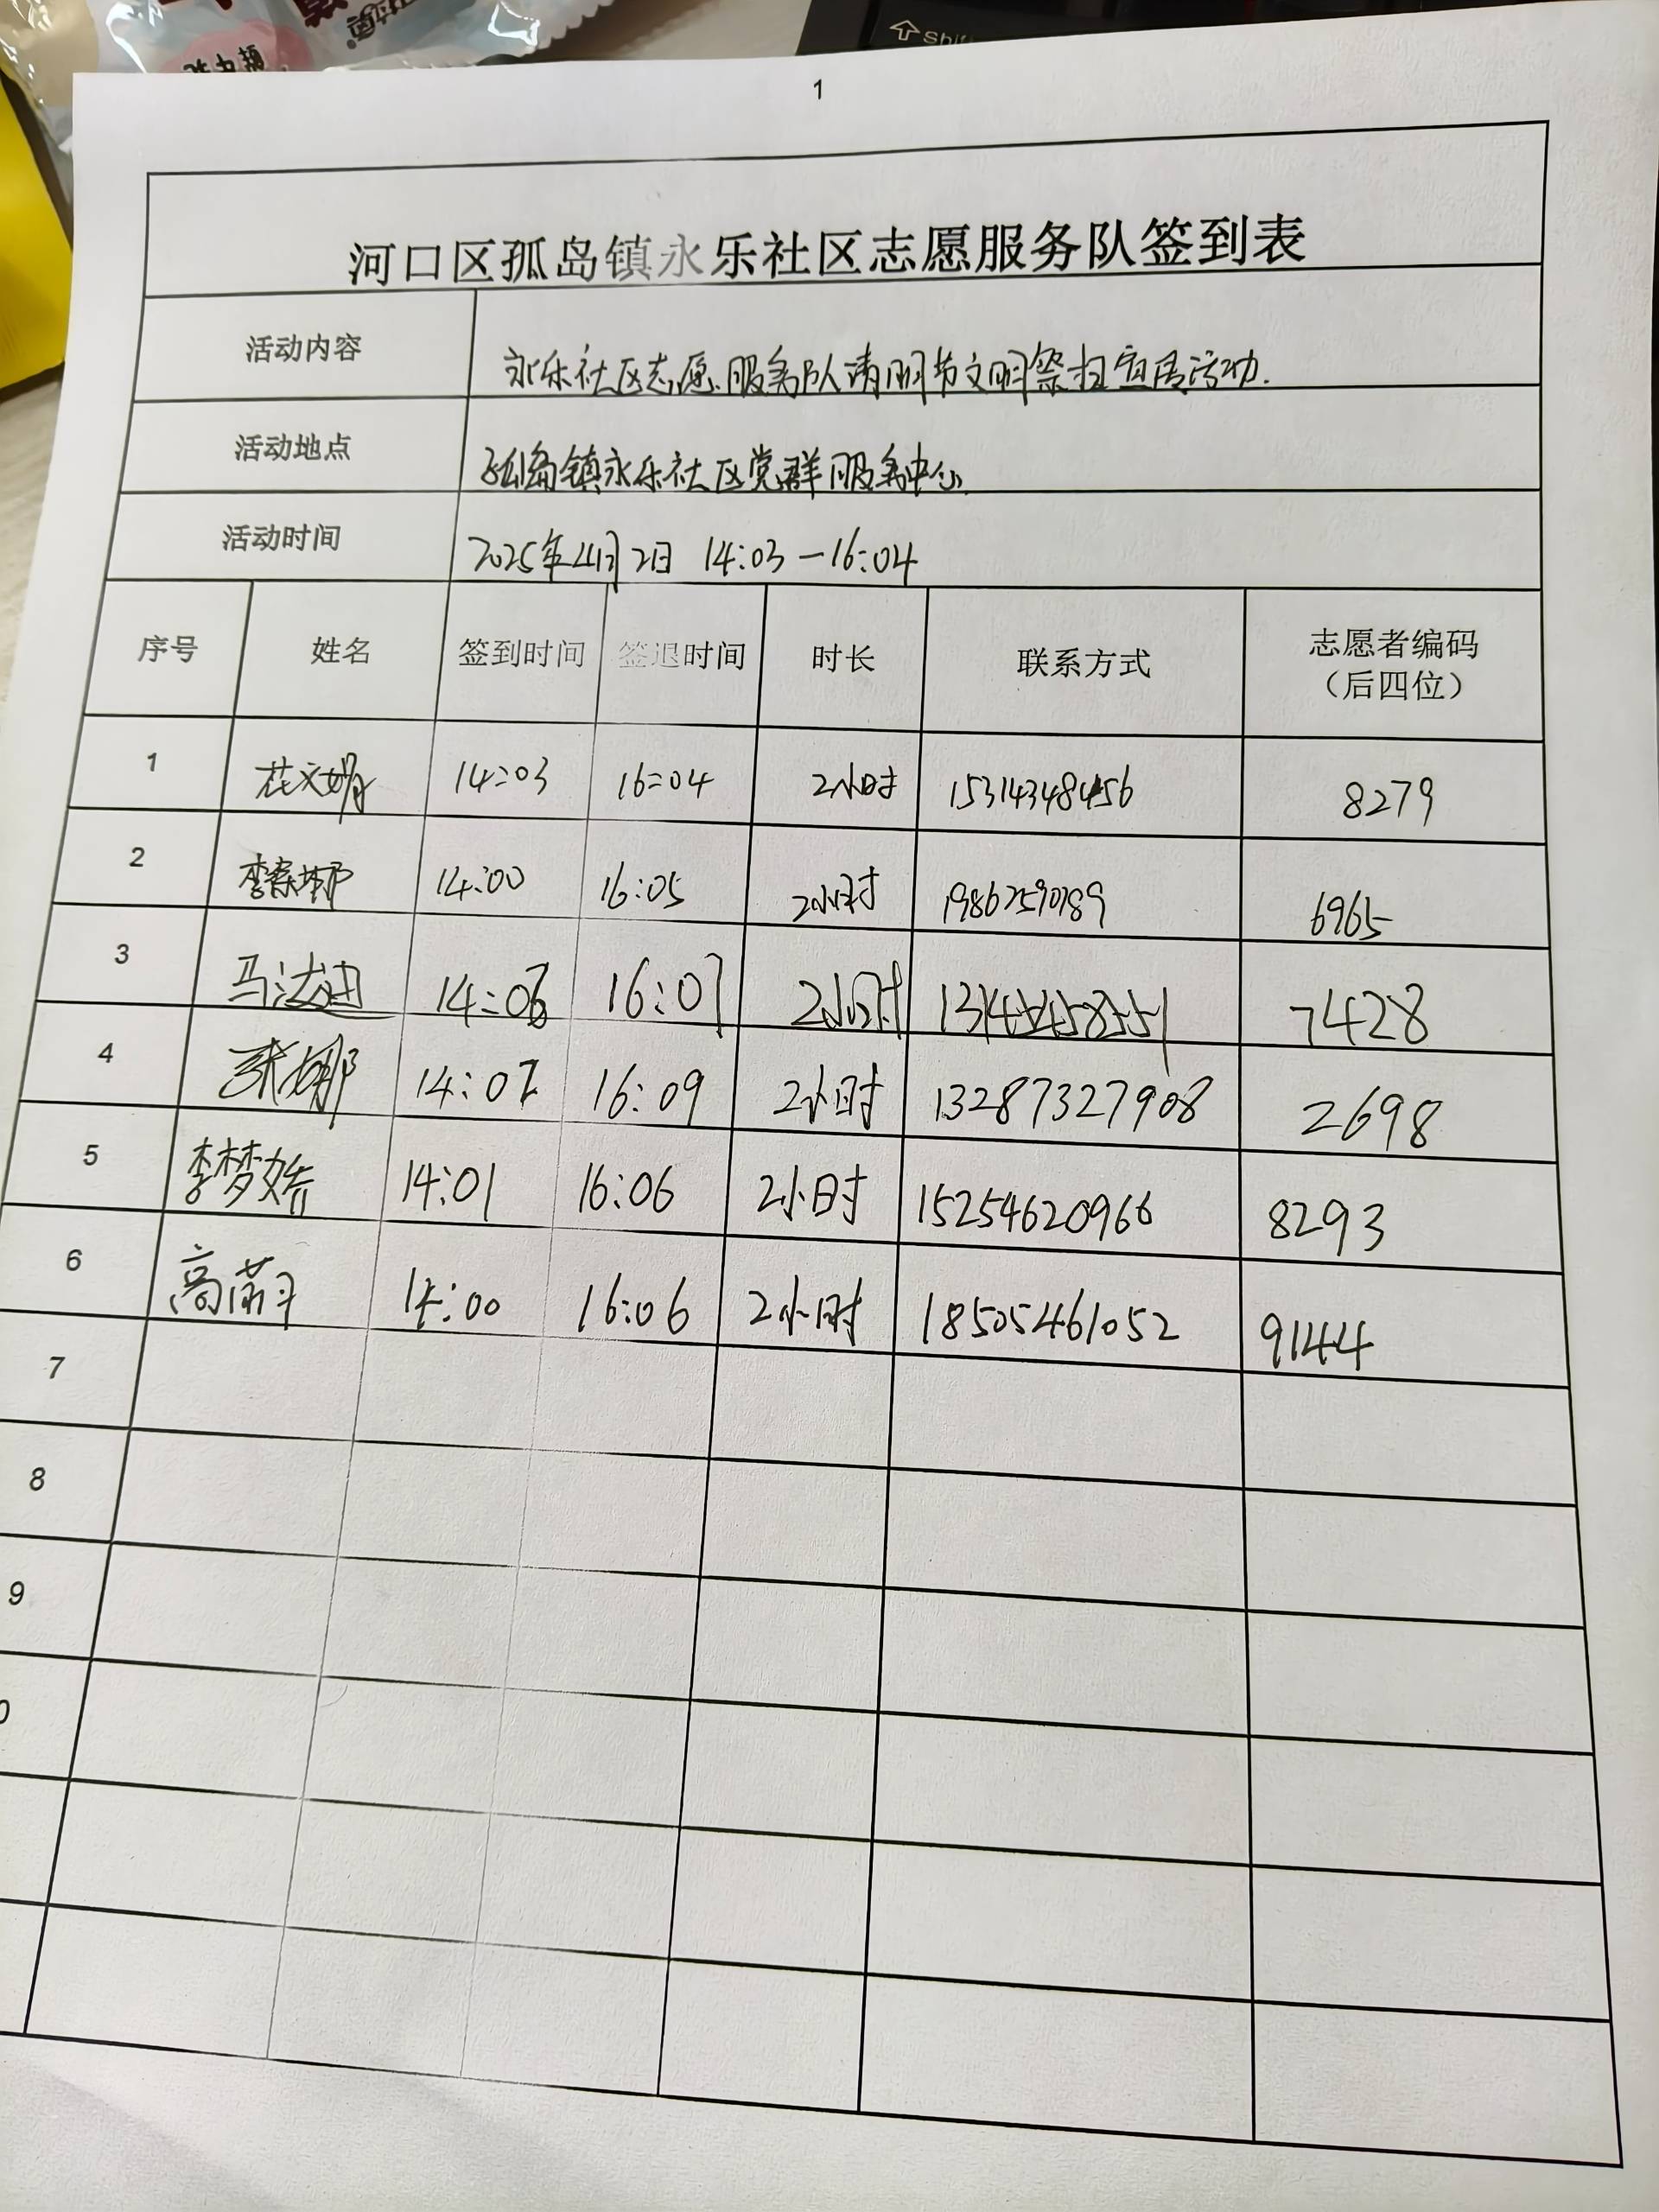 Shift
1
河口区孤岛镇永乐社区志愿服务队签到表
活动内容 永乐社区志愿服务队清明节文明祭扫宣传活动.
活动地点 孤岛镇永乐社区党群服务中心
活动时间 2025年4月2日 14:03—16:04
序号 姓名 签到时间 签退时间 时长 联系方式 志愿者编码
（后四位）
1 花文娟 14:03 16:04 2小时 15314348456 8279
2 14:00 16:05 2小时 19862590789 6965
3 14:06 16:07 2小时 7428
4 张娜 14:07 16:09 2小时 13287327908 2698
5 李梦娇 14:01 16:06 2小时 15254620966 8293
6 高 14:00 16:06 2小时 18505461052 9144
7
8
9
0